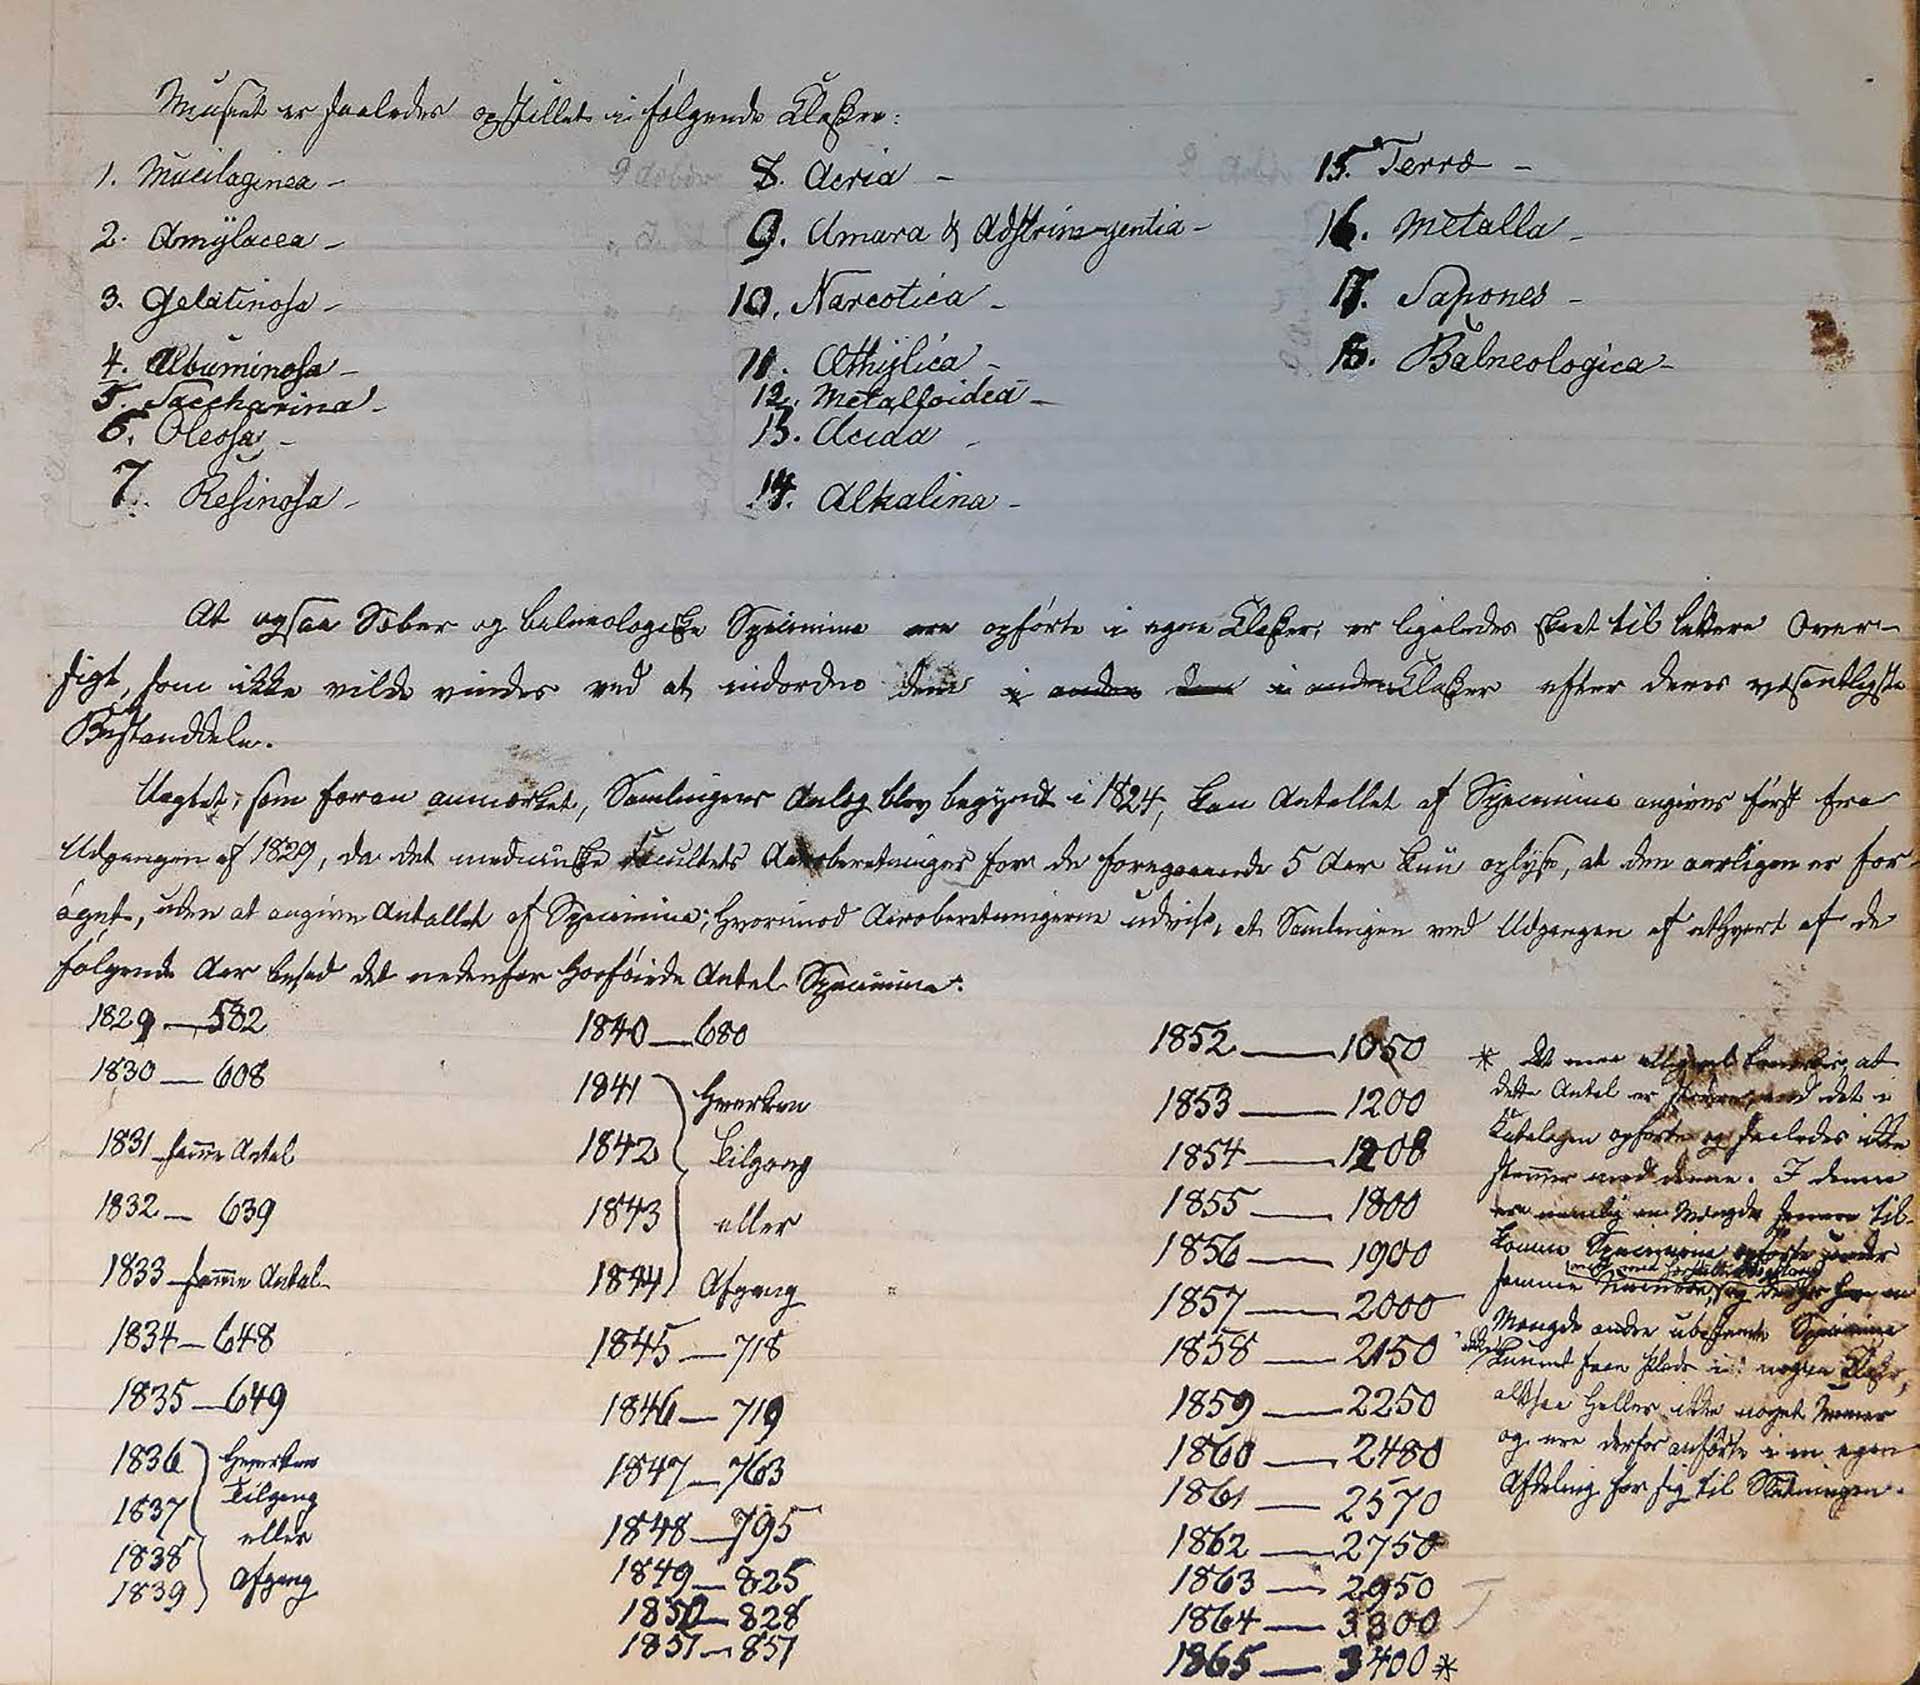 Museet er saaledes opstillet i følgende Klasser:
1. Mucilaginea -
2. Amÿlacea -
3. Gelatinosa -
4. Albuminosa -
5. Saccharina -
6. Oleosa -
7. Resinosa -
8. Acria -
9. Amara & Adstringentia -
10. Narcotica -
11. Æthÿlica -
12. Metalloidea -
13. Acida -
14. Alkalina -
15. Terræ -
16. Metalla -
17. Sapones -
18. Balneologica -
At ogsaa Sæber og balneologiske Specimina ere opførte i egne Klasser, er ligeledes skeet til lettere Over-
sigt, som ikke vilde vindes ved at indordne dem i andre Klasser efter deres væsentligste
Bestanddele.
Uagtet, som foran anmærket, Samlingens Anlæg blev begyndt i 1824, kan Antallet af Specimina angives først fra
Udgangen af 1829, da det medicinske Facultets Aarsberetninger for de foregaaende 5 Aar kun oplyse, at den aarligen er for-
øget, uden at angive Antallet af Specimina; hvorimod Aarsberetningerne udvise, at Samlingen ved Udgangen af ethvert af de
følgende Aar besad det nedenfor anførte Antal Specimina:
1829 — 582
1830 — 608
1831 samme Antal
1832 — 639
1833 — samme Antal
1834 — 648
1835 — 649
1836 Hverken
1837 Tilgang
1838 eller
1839 Afgang
1840 — 680
1841 Hverken
1842 Tilgang
1843 eller
1844 Afgang
1845 — 718
1846 — 719
1847 — 763
1848 — 795
1849 — 825
1850 — 828
1851 — 857
1852 — 1050
1853 — 1200
1854 — 1208
1855 — 1800
1856 — 1900
1857 — 2000
1858 — 2150
1859 — 2250
1860 — 2480
1861 — 2570
1862 — 2750
1863 — 2950
1864 — 3300
1865 — 3400 *
* Det maa alligevel bemærkes, at
dette Antal er større, end det i
Katalogen opførte og saaledes ikke
stemmer med denne. I denne
ere nemlig en Mængde senere til-
komne Specimina opførte under
samme Nummer, og en
Mængde andre ubestemte Specimina
ikke kunnet faae Plads i nogen Klasse,
altsaa heller ikke noget Numer
og ere derfor anførte i en egen
Afdeling for sig til Slutningen.